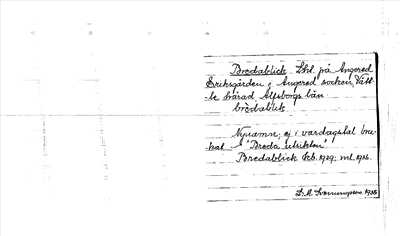 Bredablick Lht. på Angered
Eriksgården, Angered socken, Vätt-
le härad Älfsborgs län
bredablick
Nynamn; ej i vardagstal bru-
kat "Breda utsikten"
Bredablick kb. 1929; ml. 1935.
1935